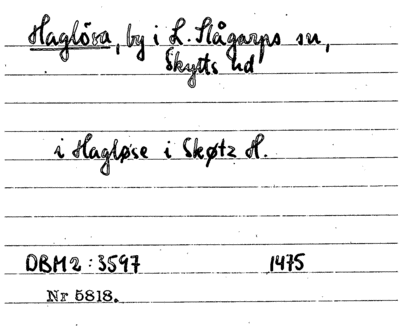 Haglösa, by i L. Slågarps sn,
Skytts hd
i Hagløse i Skøtz H.
DBM2:3597 1475
Nr 5818.